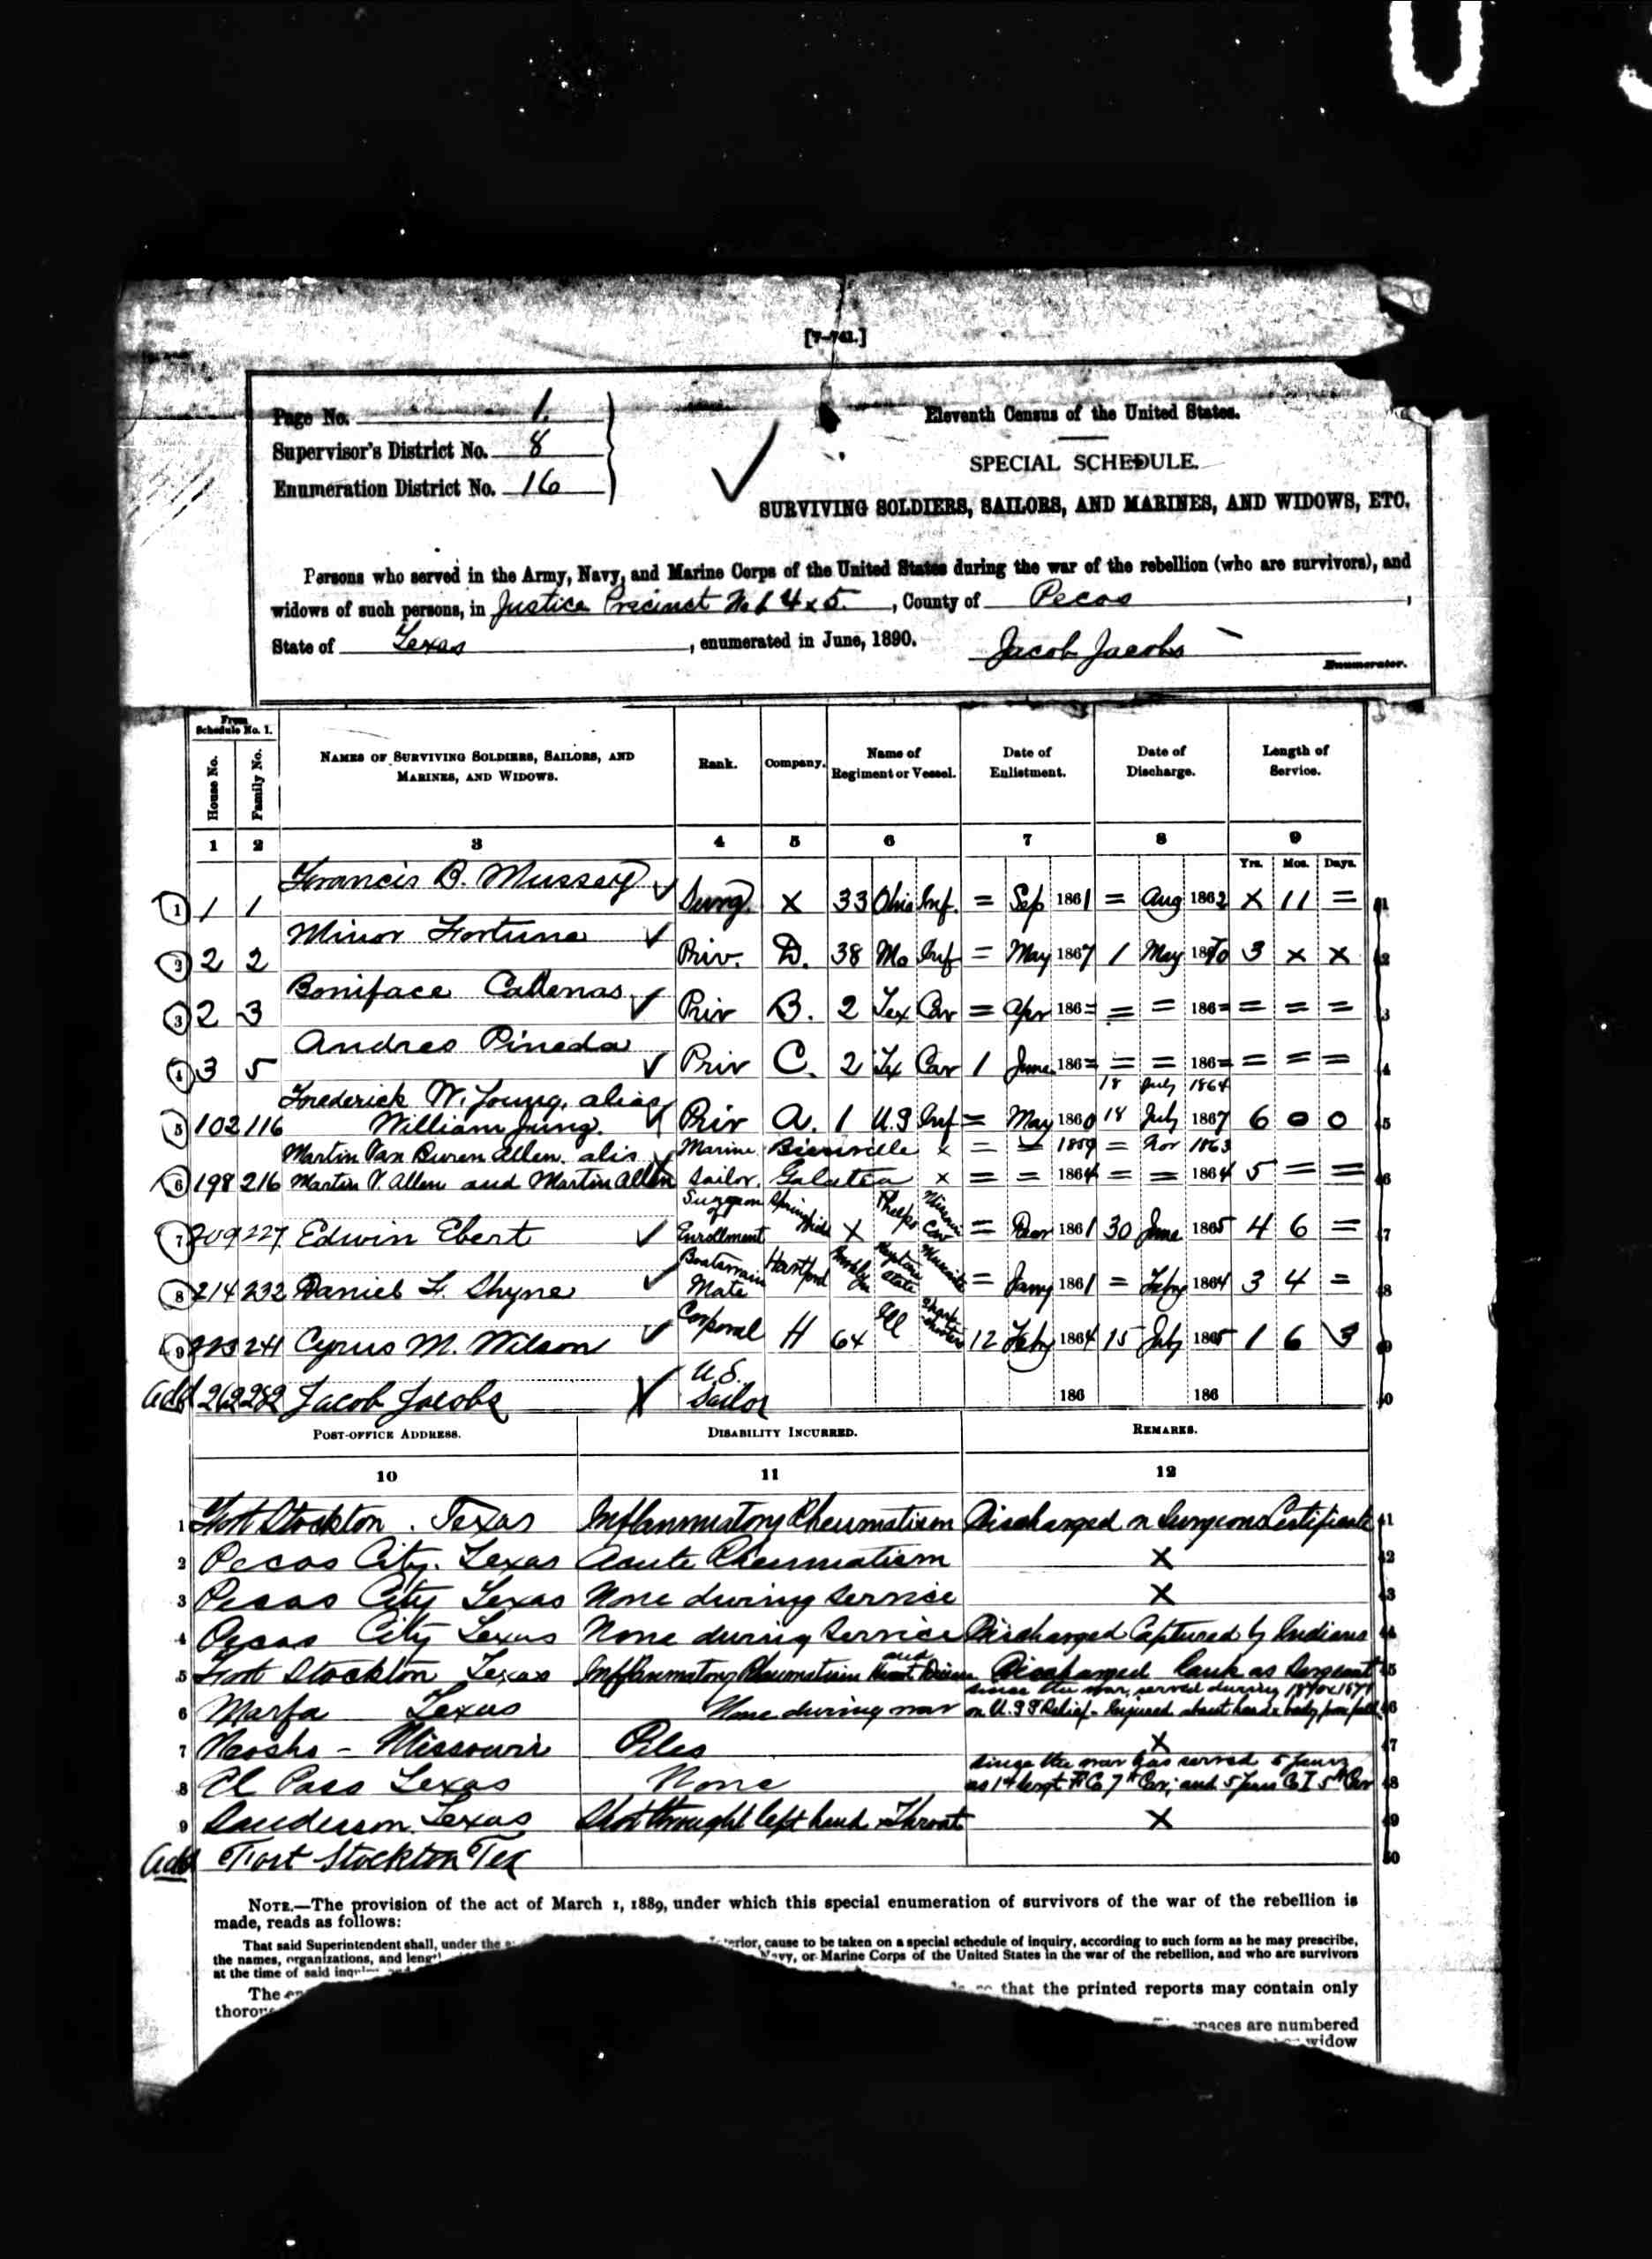 U S
[7-741.]
Page No. 1.
Supervisor's District No. 8
Enumeration District No. 16
Eleventh Census of the United States.
SPECIAL SCHEDULE.
SURVIVING SOLDIERS, SAILORS, AND MARINES, AND WIDOWS, ETC.
Persons who served in the Army, Navy, and Marine Corps of the United States during the war of the rebellion (who are survivors), and
widows of such persons, in Justice Precinct No 1 4 x 5., County of Pecos,
State of Texas, enumerated in June, 1890. Jacob Jacobs
Enumerator.
From Schedule No. 1.
House No. Family No. NAMES OF SURVIVING SOLDIERS, SAILORS, AND MARINES, AND WIDOWS. Rank. Company. Name of Regiment or Vessel. Date of Enlistment. Date of Discharge. Length of Service.
1 2 3 4 5 6 7 8 9
Yrs. Mos. Days.
1 1 1 Francis B. Mussey Surg. X 33 Ohio Inf. = Sep 1861 = Aug 1862 X 11 = 1
2 2 2 Minor Fortune Priv. D. 38 Mo Inf = May 1867 1 May 1870 3 x x 2
3 2 3 Boniface Priv B. 2 Tex Cav = Apr 186= = = 186= = = = 3
4 3 5 Andres Pineda Priv C. 2 Tx Cav 1 June 186= = = 186= = = = 4
18 July 1864
5 102 116 Frederick W. Young, alias William Jung. Priv A. 1 U.S Inf = May 1860 18 July 1867 6 0 0 5
Martin Van Buren Allen. alis Marine Bienville x = = 1859 = Nov 1863
6 198 216 Martin V. Allen and Martin Allen Sailor. Galatea x = = 1864 = = 1864 5 = = 6
7 209 227 Edwin Ebert Surgeon of Enrollment Springfield X Phelps Missouri Cav = 1861 30 June 1865 4 6 = 7
8 214 232 Daniel F. Shyne Boatswain Mate Hartford Keystone State = Jany 1861 = Feby 1864 3 4 = 8
9 223 241 Cyrus M. Wilson Corporal H 64 Ill Sharp shooters 12 Feby 1864 15 July 1865 1 6 3 9
Add 262 282 Jacob Jacobs U.S. Sailor 186 186 10
POST-OFFICE ADDRESS. DISABILITY INCURRED. REMARKS.
10 11 12
1 Fort Stockton. Texas Inflammatory Rheumatism Discharged on Surgeons Certificate 1
2 Pecos City. Texas Acute Rheumatism X 2
3 Pecos City Texas None during Service X 3
4 Pecos City Texas None during Service Discharged Captured by Indians 4
5 Fort Stockton Texas Inflammatory Rheumatism and Heart Disease Discharged Rank as Sergeant 5
since the war, served during 1870 x 1871
6 Marfa Texas None during war on U.S S Relief - Injured about head x body from fall. 6
7 Neosho - Missouri Piles X 7
since the war has served 5 years
8 El Paso Texas None as 1st Sergt F Co 7th Cav; and 5 years Co I 5th Cav 8
9 Sanderson, Texas Shot throught left hand x Throat X 9
Add Fort Stockton Tex 10
NOTE.—The provision of the act of March 1, 1889, under which this special enumeration of survivors of the war of the rebellion is
made, reads as follows:
That said Superintendent shall, under the cause to be taken on a special schedule of inquiry, according to such form as he may prescribe,
the names, organizations, and Navy, or Marine Corps of the United States in the war of the rebellion, and who are survivors
at the time of said
The that the printed reports may contain only
are numbered
widow